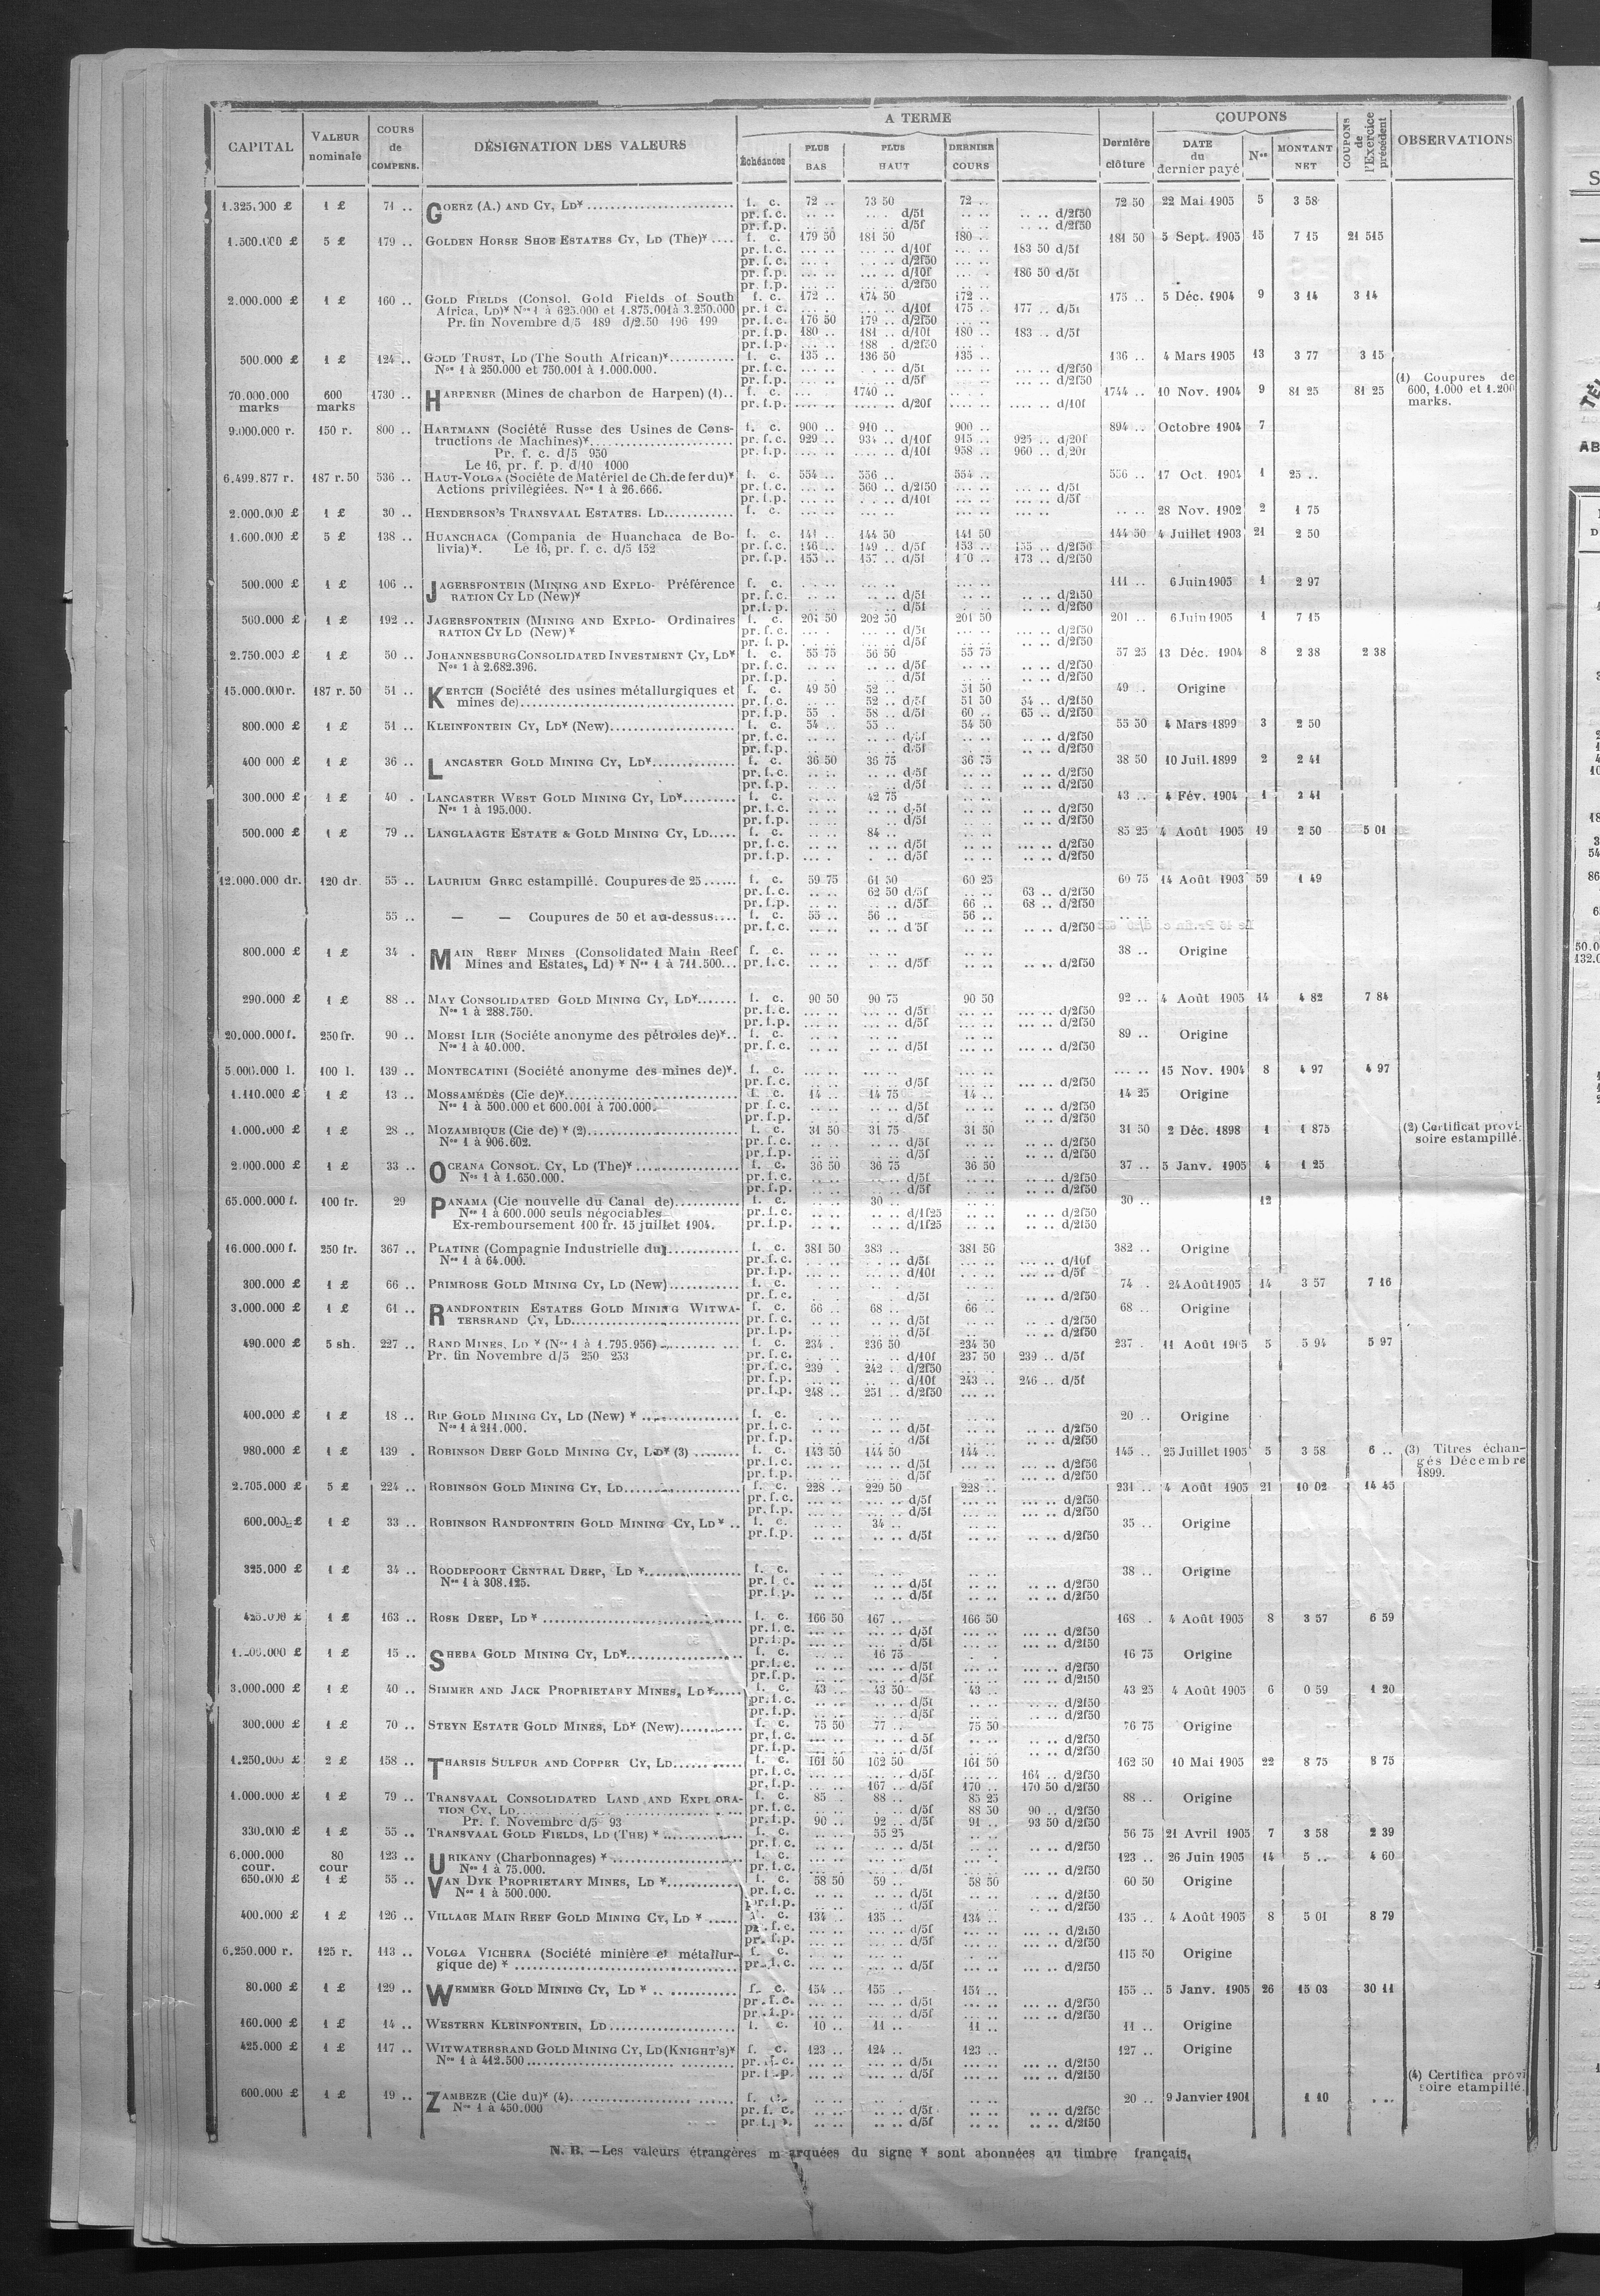 CAPITAL | VALEUR nominale | COURS de COMPENS. | DÉSIGNATION DES VALEURS | A TERME | Dernière clôture | COUPONS | COUPONS de l'Exercice précédent | OBSERVATIONS
Échéances | PLUS BAS | PLUS HAUT | DERNIER COURS | DATE du dernier payé | Nos | MONTANT NET
1.325.000 £ | 1 £ | 71 .. | GOERZ (A.) AND CY, LD* | f. c. | 72 .. | 73 50 | 72 .. | 72 50 | 22 Mai 1905 | 5 | 3 58
pr. f. c. | d/5f | d/2f50
pr. f. p. | d/5f | d/2f50
1.500.000 £ | 5 £ | 179 .. | GOLDEN HORSE SHOE ESTATES CY, LD (The)* | f. c. | 179 50 | 181 50 | 180 .. | 181 50 | 5 Sept. 1905 | 15 | 7 15 | 21 515
pr. f. c. | d/10f | 183 50 d/5f
pr. f. c. | d/2f50
pr. f. p. | d/10f | 186 50 d/5f
pr. f. p. | d/2f50
2.000.000 £ | 1 £ | 160 .. | GOLD FIELDS (Consol. Gold Fields of South | f. c. | 172 .. | 174 50 | 172 .. | 175 .. | 5 Déc. 1904 | 9 | 3 14 | 3 14
Africa, LD)* Nos 1 à 625.000 et 1.875.001 à 3.250.000 | pr. f. c. | d/10f | 175 .. | 177 .. d/5f
Pr. fin Novembre d/5 189 d/2.50 196 199 | pr. f. c. | 176 50 | 179 .. d/2f50
pr. f. p. | 180 .. | 181 .. d/10f | 180 .. | 183 .. d/5f
pr. f. p. | 188 . d/2f50
500.000 £ | 1 £ | 124 .. | GOLD TRUST, LD (The South African)* | f. c. | 135 .. | 136 50 | 135 .. | 136 .. | 4 Mars 1905 | 13 | 3 77 | 3 15
Nos 1 à 250.000 et 750.001 à 1.000.000. | pr. f. c. | d/5f | d/2f50
pr. f. p. | d/5f | d/2f50
70.000.000 marks | 600 marks | 1730 .. | HARPENER (Mines de charbon de Harpen) (1) | f. c. | 1740 .. | 1744 .. | 10 Nov. 1904 | 9 | 81 25 | 81 25 | (1) Coupures de 600, 1.000 et 1.200 marks.
pr. f. p. | d/20f | d/10f
9.000.000 r. | 150 r. | 800 .. | HARTMANN (Société Russe des Usines de Cons- | f. c. | 900 .. | 910 .. | 900 .. | 894 .. | Octobre 1904 | 7
tructions de Machines)* | pr. f. c. | 929 .. | 934 .. d/10f | 915 .. | 925 .. d/20f
Pr. f. c. d/5 950 | pr. f. p. | d/10f | 958 .. | 960 .. d/20f
Le 16, pr. f. p. d/10 1000
6.499.877 r. | 187 r. 50 | 536 .. | HAUT-VOLGA (Société de Matériel de Ch. de fer du)* | f. c. | 554 .. | 556 .. | 554 .. | 556 .. | 17 Oct. 1904 | 1 | 25 ..
Actions privilégiées. Nos 1 à 26.666. | pr. f. c. | 560 .. d/2f50 | d/5f
pr. f. p. | d/10f | d/5f
2.000.000 £ | 1 £ | 30 .. | HENDERSON'S TRANSVAAL ESTATES. LD | f. c. | 28 Nov. 1902 | 2 | 1 75
1.600.000 £ | 5 £ | 138 .. | HUANCHACA (Compania de Huanchaca de Bo- | f. c. | 141 .. | 144 50 | 141 50 | 144 50 | 4 Juillet 1903 | 21 | 2 50
livia)*. Le 16, pr. f. c. d/5 152 | pr. f. c. | 146 .. | 149 .. d/5f | 153 .. | 155 .. d/2f50
pr. f. p. | 155 .. | 157 .. d/5f | 173 .. d/2f50
500.000 £ | 1 £ | 106 .. | JAGERSFONTEIN (MINING AND EXPLO- Préférence | f. c. | 111 .. | 6 Juin 1905 | 1 | 2 97
RATION CY LD (New)* | pr. f. c. | d/5f | d/2f50
pr. f. p. | d/5f | d/2f50
500.000 £ | 1 £ | 192 .. | JAGERSFONTEIN (MINING AND EXPLO- Ordinaires | f. c. | 201 50 | 202 50 | 201 50 | 201 .. | 6 Juin 1905 | 1 | 7 15
RATION CY LD (New)* | pr. f. c. | d/5f | d/2f50
pr. f. p. | d/5f | d/2f50
2.750.000 £ | 1 £ | 50 .. | JOHANNESBURG CONSOLIDATED INVESTMENT CY, LD* | f. c. | 55 75 | 56 50 | 55 75 | 57 25 | 13 Déc. 1904 | 8 | 2 38 | 2 38
Nos 1 à 2.682.396. | pr. f. c. | d/5f | d/2f50
pr. f. p. | d/5f | d/2f50
15.000.000 r. | 187 r. 50 | 51 .. | KERTCH (Société des usines métallurgiques et | f. c. | 49 50 | 52 .. | 51 50 | 49 . | Origine
mines de) | pr. f. c. | 52 .. d/5f | 51 50 | 54 .. d/2f50
pr. f. p. | 55 . | 58 .. d/5f | 60 .. | 65 .. d/2f50
800.000 £ | 1 £ | 51 .. | KLEINFONTEIN CY, LD* (New) | f. c. | 54 .. | 55 .. | 54 50 | 55 50 | 4 Mars 1899 | 3 | 2 50
pr. f. c. | d/5f | d/2f50
pr. f. p. | d/5f | d/2f50
400 000 £ | 1 £ | 36 .. | LANCASTER GOLD MINING CY, LD* | f. c. | 36 50 | 36 75 | 36 75 | 38 50 | 10 Juil. 1899 | 2 | 2 41
pr. f. c. | d/5f | d/2f50
pr. f. p. | d/5f | d/2f50
300.000 £ | 1 £ | 40 . | LANCASTER WEST GOLD MINING CY, LD* | f. c. | 42 75 | 43 .. | 4 Fév. 1904 | 1 | 2 41
Nos 1 à 195.000. | pr. f. c. | d/5f | d/2f50
pr. f. p. | d/5f | d/2f50
500.000 £ | 1 £ | 79 .. | LANGLAAGTE ESTATE & GOLD MINING CY, LD | f. c. | 84 .. | 85 25 | 4 Août 1905 | 19 | 2 50 | 5 01
pr. f. c. | d/5f | d/2f50
pr. f. p. | d/5f | d/2f50
12.000.000 dr. | 120 dr. | 55 .. | LAURIUM GREC estampillé. Coupures de 25 | f. c. | 59 75 | 61 50 | 60 25 | 60 75 | 14 Août 1903 | 59 | 1 49
pr. f. c. | 62 50 d/5f | 63 .. d/2f50
pr. f. p. | d/5f | 66 .. | 68 .. d/2f50
55 .. | — — Coupures de 50 et au-dessus | f. c. | 55 .. | 56 .. | 56 ..
pr. f. c. | d/5f | d/2f50
800.000 £ | 1 £ | 34 . | MAIN REEF MINES (Consolidated Main Reef | f. c. | 38 .. | Origine
Mines and Estates, Ld) * Nos 1 à 711.500 | pr. f. c. | d/5f | d/2f50
290.000 £ | 1 £ | 88 .. | MAY CONSOLIDATED GOLD MINING CY, LD* | f. c. | 90 50 | 90 75 | 90 50 | 92 .. | 4 Août 1905 | 14 | 4 82 | 7 84
Nos 1 à 288.750. | pr. f. c. | d/5f | d/2f50
pr. f. p. | d/5f | d/2f50
20.000.000 f. | 250 fr. | 90 .. | MOESI ILIR (Société anonyme des pétroles de)* | f. c. | 89 .. | Origine
Nos 1 à 40.000. | pr. f. c. | d/5f | d/2f50
5.000.000 l. | 100 l. | 139 .. | MONTECATINI (Société anonyme des mines de)*. | f. c. | 15 Nov. 1904 | 8 | 4 97 | 4 97
pr. f. c. | d/5f | d/2f50
1.110.000 £ | 1 £ | 13 .. | MOSSAMÉDÈS (Cie de)* | f. c. | 14 .. | 14 75 | 14 .. | 14 25 | Origine
Nos 1 à 500.000 et 600.001 à 700.000. | pr. f. c. | d/5f | d/2f50
pr. f. p. | d/5f | d/2f50
1.000.000 £ | 1 £ | 28 .. | MOZAMBIQUE (Cie de) * (2) | f. c. | 31 50 | 31 75 | 31 50 | 31 50 | 2 Déc. 1898 | 1 | 1 875 | (2) Certificat provi- soire estampillé.
Nos 1 à 906.602. | pr. f. c. | d/5f | d/2f50
pr. f. p. | d/5f | d/2f50
2.000.000 £ | 1 £ | 33 .. | OCEANA CONSOL. CY, LD (The)* | f. c. | 36 50 | 36 75 | 36 50 | 37 .. | 5 Janv. 1905 | 4 | 1 25
Nos 1 à 1.650.000. | pr. f. c. | d/5f | d/2f50
pr. f. p. | d/5f | d/2f50
65.000.000 f. | 100 fr. | 29 | PANAMA (Cie nouvelle du Canal de) | f. c. | 30 .. | 30 .. | 12
Nos 1 à 600.000 seuls négociables | pr. f. c. | d/1f25 | d/2f50
Ex-remboursement 100 fr. 15 juillet 1904. | pr. f. p. | d/1f25 | d/2f50
16.000.000 f. | 250 fr. | 367 .. | PLATINE (Compagnie Industrielle du) | f. c. | 381 50 | 383 .. | 381 50 | 382 .. | Origine
Nos 1 à 64.000. | pr. f. c. | d/5f | d/10f
pr. f. p. | d/10f | d/5f
300.000 £ | 1 £ | 66 .. | PRIMROSE GOLD MINING CY, LD (New) | f. c. | 74 .. | 24 Août 1905 | 14 | 3 57 | 7 16
pr. f. c. | d/5f | d/2f50
3.000.000 £ | 1 £ | 61 .. | RANDFONTEIN ESTATES GOLD MINING WITWA- | f. c. | 66 .. | 68 .. | 66 .. | 68 .. | Origine
TERSRAND CY, LD | pr. f. c. | d/5f | d/2f50
pr. f. p. | d/5f | d/2f50
490.000 £ | 5 sh. | 227 .. | RAND MINES, LD * (Nos 1 à 1.795.956) | f. c. | 234 . | 236 50 | 234 50 | 237 . | 11 Août 1905 | 5 | 5 94 | 5 97
Pr. fin Novembre d/5 250 253 | pr. f. c. | d/10f | 237 50 | 239 .. d/5f
pr. f. c. | 239 | 242 .. d/2f50
pr. f. p. | d/10f | 243 .. | 246 .. d/5f
pr. f. p. | 248 .. | 251 .. d/2f50
400.000 £ | 1 £ | 18 .. | RIP GOLD MINING CY, LD (New) * | f. c. | 20 .. | Origine
Nos 1 à 211.000. | pr. f. c. | d/5f | d/2f50
pr. f. p. | d/5f | d/2f50
980.000 £ | 1 £ | 139 . | ROBINSON DEEP GOLD MINING CY, LD* (3) | f. c. | 143 50 | 144 50 | 144 .. | 145 .. | 25 Juillet 1905 | 5 | 3 58 | 6 .. | (3) Titres échan- gés Décembre 1899.
pr. f. c. | d/5f | d/2f50
pr. f. p. | d/5f | d/2f50
2.705.000 £ | 5 £ | 224 .. | ROBINSON GOLD MINING CY, LD | f. c. | 228 .. | 229 50 | 228 .. | 231 .. | 4 Août 1905 | 21 | 10 02 | 14 45
pr. f. c. | d/5f | d/2f50
pr. f. p. | d/5f | d/2f50
600.000 £ | 1 £ | 33 .. | ROBINSON RANDFONTEIN GOLD MINING CY, LD * | f. c. | 34 .. | 35 .. | Origine
pr. f. p. | d/5f | d/2f50
325.000 £ | 1 £ | 34 .. | ROODEPOORT CENTRAL DEEP, LD * | f. c. | 38 .. | Origine
Nos 1 à 308.125. | pr. f. c. | d/5f | d/2f50
pr. f. p. | d/5f | d/2f50
425.000 £ | 1 £ | 163 .. | ROSE DEEP, LD * | f. c. | 166 50 | 167 .. | 166 50 | 168 . | 4 Août 1905 | 8 | 3 57 | 6 59
pr. f. c. | d/5f | d/2f50
pr. f. p. | d/5f | d/2f50
1 £ | 15 .. | SHEBA GOLD MINING CY, LD* | f. c. | 16 75 | 16 75 | Origine
pr. f. c. | d/5f | d/2f50
pr. f. p. | d/5f | d/2f50
3.000.000 £ | 1 £ | 40 .. | SIMMER AND JACK PROPRIETARY MINES, LD* | f. c. | 43 .. | 43 50 | 43 .. | 43 25 | 4 Août 1905 | 6 | 0 59 | 1 20
pr. f. c. | d/5f | d/2f50
pr. f. p. | d/5f | d/2f50
300.000 £ | 1 £ | 70 .. | STEYN ESTATE GOLD MINES, LD* (New) | f. c. | 75 50 | 77 .. | 75 50 | 76 75 | Origine
pr. f. c. | d 5f | d/2f50
pr. f. p. | d/5f | d/2f50
1.250.000 £ | 2 £ | 158 .. | THARSIS SULFUR AND COPPER CY, LD | f. c. | 161 50 | 162 50 | 161 50 | 162 50 | 10 Mai 1905 | 22 | 8 75 | 8 75
pr. f. c. | d/5f | 164 .. d/2f50
pr. f. p. | 167 .. d/5f | 170 .. | 170 50 d/2f50
1.000.000 £ | 1 £ | 79 .. | TRANSVAAL CONSOLIDATED LAND AND EXPLORA- | f. c. | 85 . | 88 .. | 85 25 | 88 .. | Origine
TION CY, LD | pr. f. c. | d/5f | 88 50 | 90 .. d/2f50
Pr. f. Novembre d/5 93 | pr. f. p. | 90 .. | 92 .. d/5f | 91 .. | 93 50 d/2f50
330.000 £ | 1 £ | 55 .. | TRANSVAAL GOLD FIELDS, LD (THE) * | f. c. | 55 25 | 56 75 | 21 Avril 1905 | 7 | 3 58 | 2 39
pr. f. c. | d/5f | d/2f50
6.000.000 cour. | 80 cour | 123 .. | URIKANY (Charbonnages) * | f. c. | 123 .. | 26 Juin 1905 | 14 | 5 .. | 4 60
Nos 1 à 75.000. | pr. f. c. | d/5f | d/2f50
650.000 £ | 1 £ | 55 .. | VAN DYK PROPRIETARY MINES, LD * | f. c. | 58 50 | 59 .. | 58 50 | 60 50 | Origine
Nos 1 à 500.000. | pr. f. c. | d/5f | d/2f50
pr. f. p. | d/5f | d/2f50
400.000 £ | 1 £ | 126 .. | VILLAGE MAIN REEF GOLD MINING CY, LD * | f. c. | 134 .. | 135 .. | 134 .. | 135 .. | 4 Août 1905 | 8 | 5 01 | 8 79
pr. f. c. | d/5f | d/2f50
pr. f. p. | d/5f | d/2f50
6.250.000 r. | 125 r. | 113 .. | VOLGA VICHERA (Société minière et métallur- | f. c. | 115 50 | Origine
gique de) * | pr. f. c. | d/5f | d/2f50
80.000 £ | 1 £ | 129 .. | WEMMER GOLD MINING CY, LD * | f. c. | 154 .. | 155 .. | 154 .. | 155 .. | 5 Janv. 1905 | 26 | 15 03 | 30 11
pr. f. c. | d/5f | d/2f50
pr. f. p. | d/5f | d/2f50
160.000 £ | 1 £ | 14 .. | WESTERN KLEINFONTEIN, LD | f. c. | 10 .. | 11 .. | 11 .. | 11 .. | Origine
425.000 £ | 1 £ | 117 .. | WITWATERSRAND GOLD MINING CY, LD (KNIGHT'S)* | f. c. | 123 .. | 124 .. | 123 .. | 127 .. | Origine
Nos 1 à 412.500 | pr. f. c. | d/5f | d/2f50
pr. f. p. | d/5f | d/2f50
600.000 £ | 1 £ | 19 .. | ZAMBEZE (Cie du)* (4) | f. c. | 20 .. | 9 Janvier 1901 | 1 10 | (4) Certifica provi soire etampillé.
Nos 1 à 450.000 | pr. f. c. | d/5f | d/2f50
pr. f. p. | d/5f | d/2f50
N. B. — Les valeurs étrangères marquées du signe * sont abonnées au timbre français.